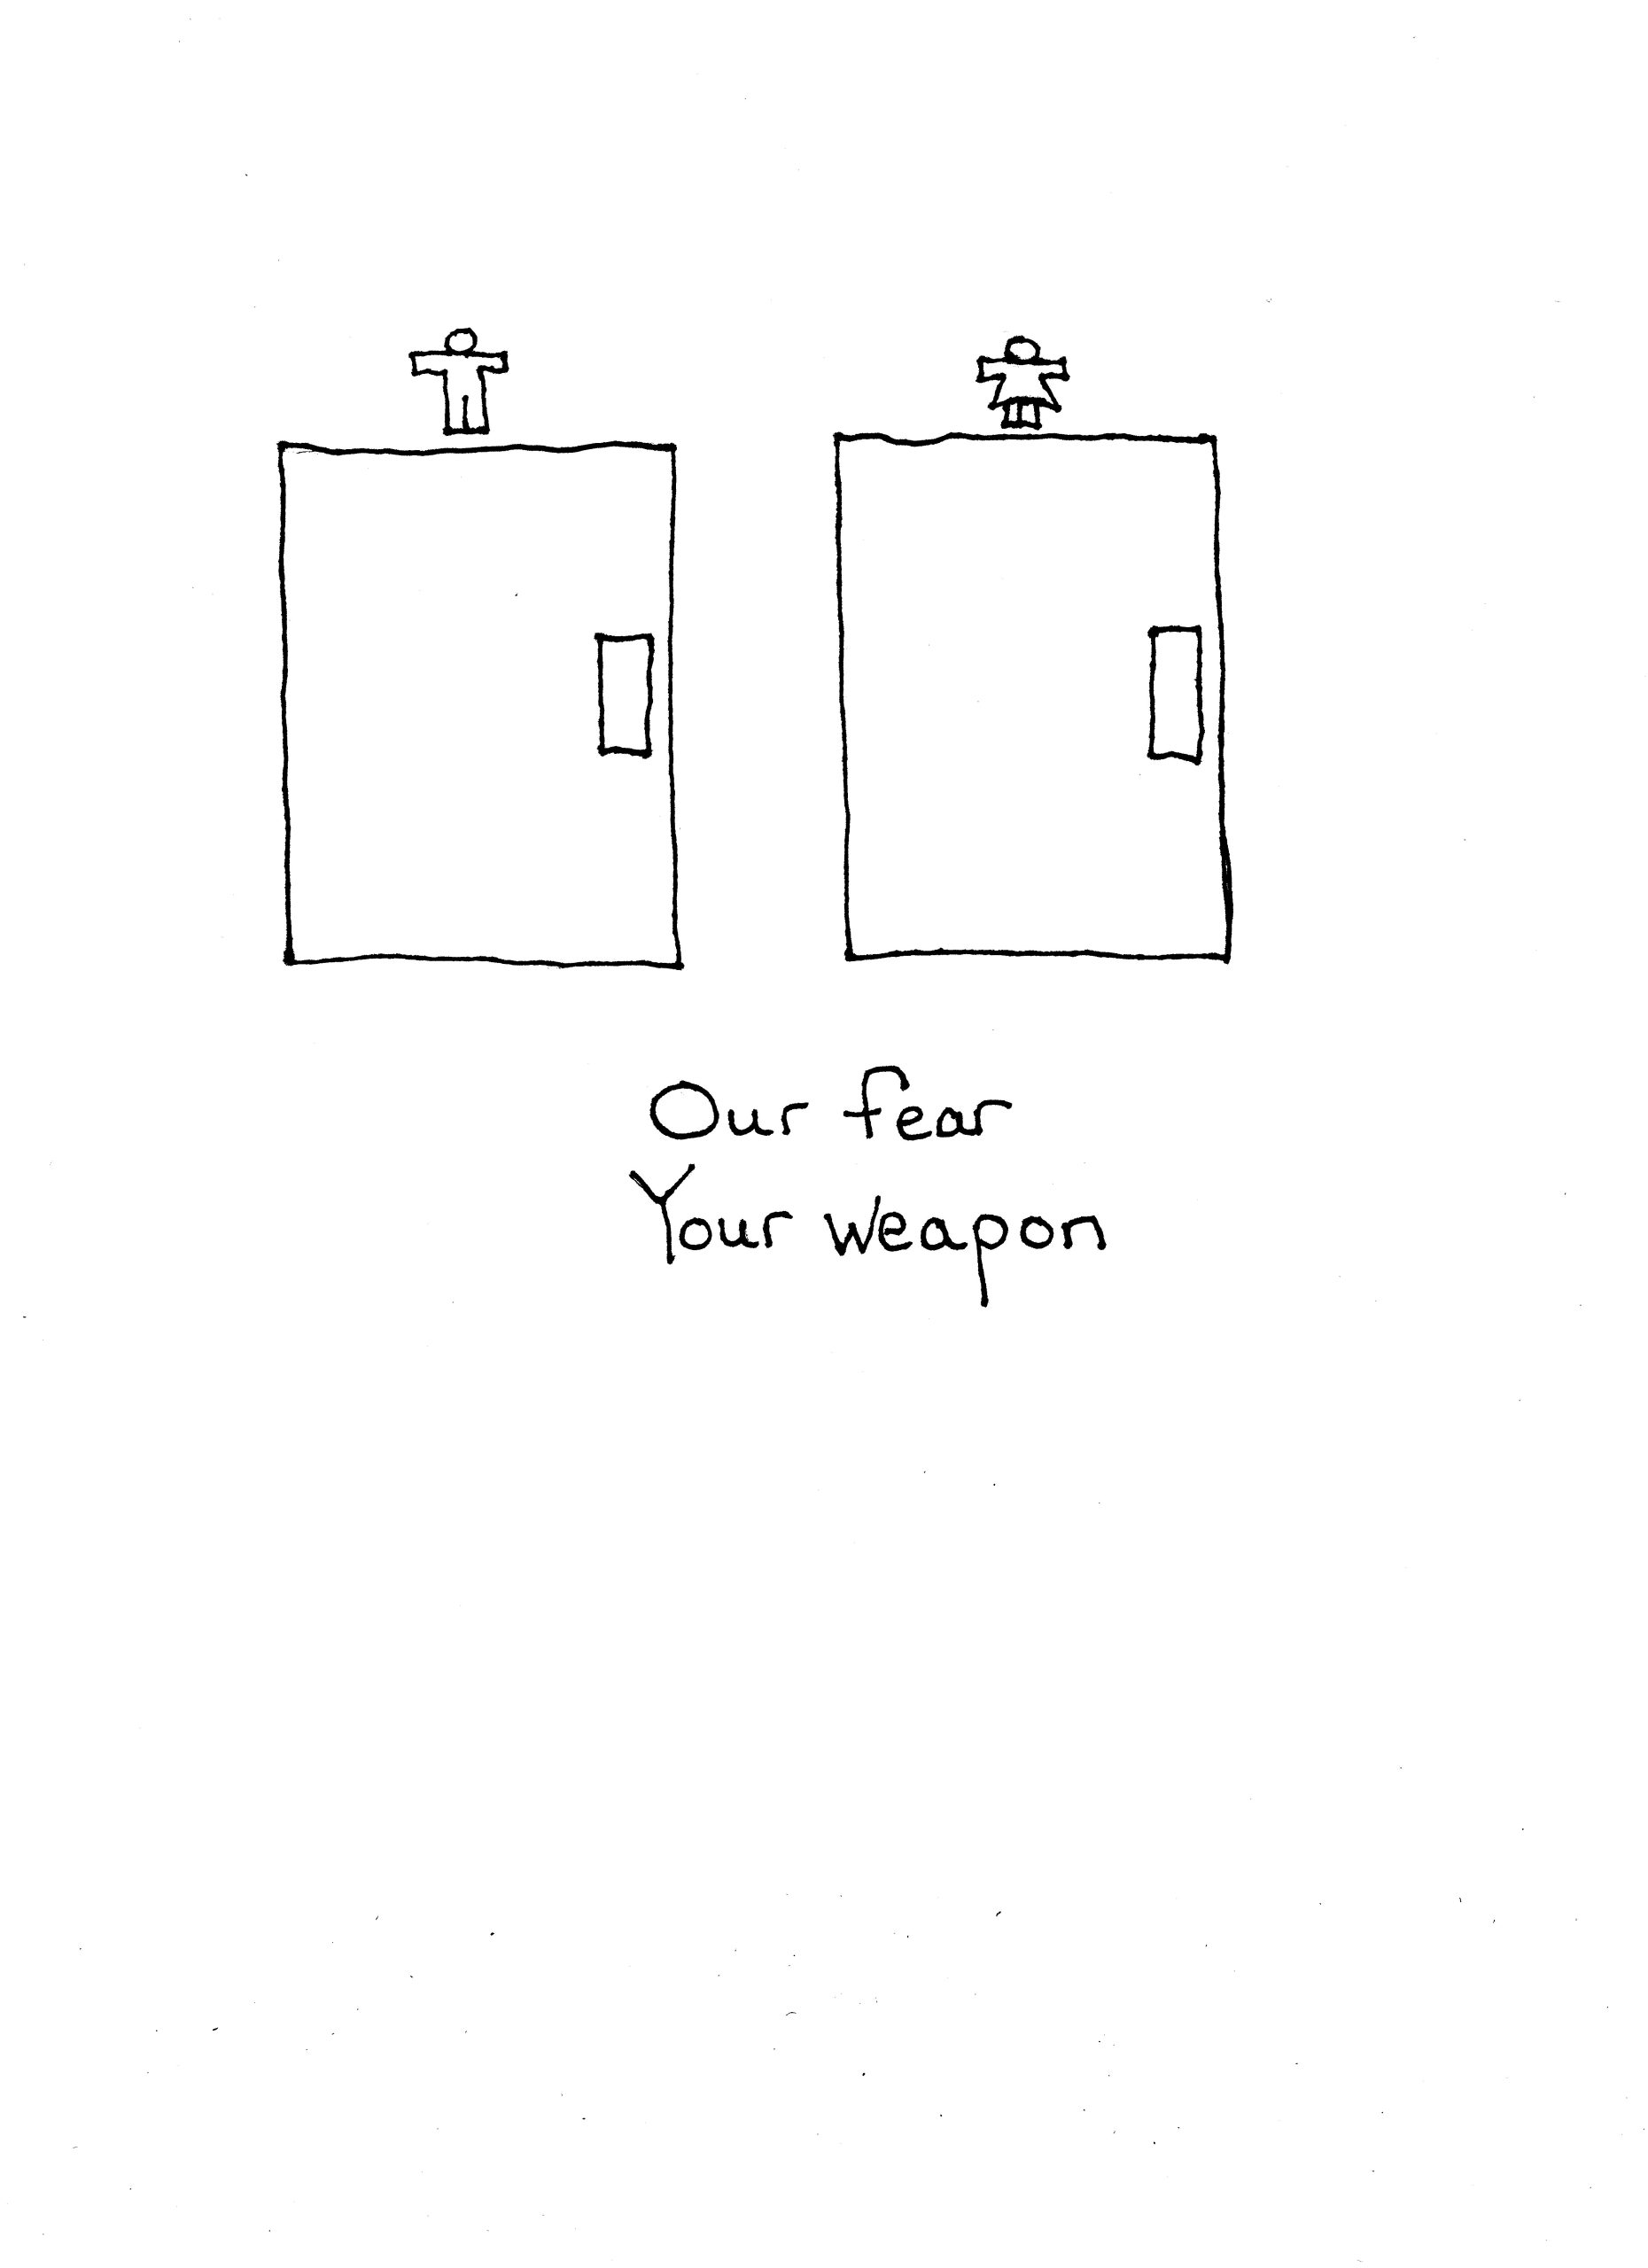 Our fear
Your weapon